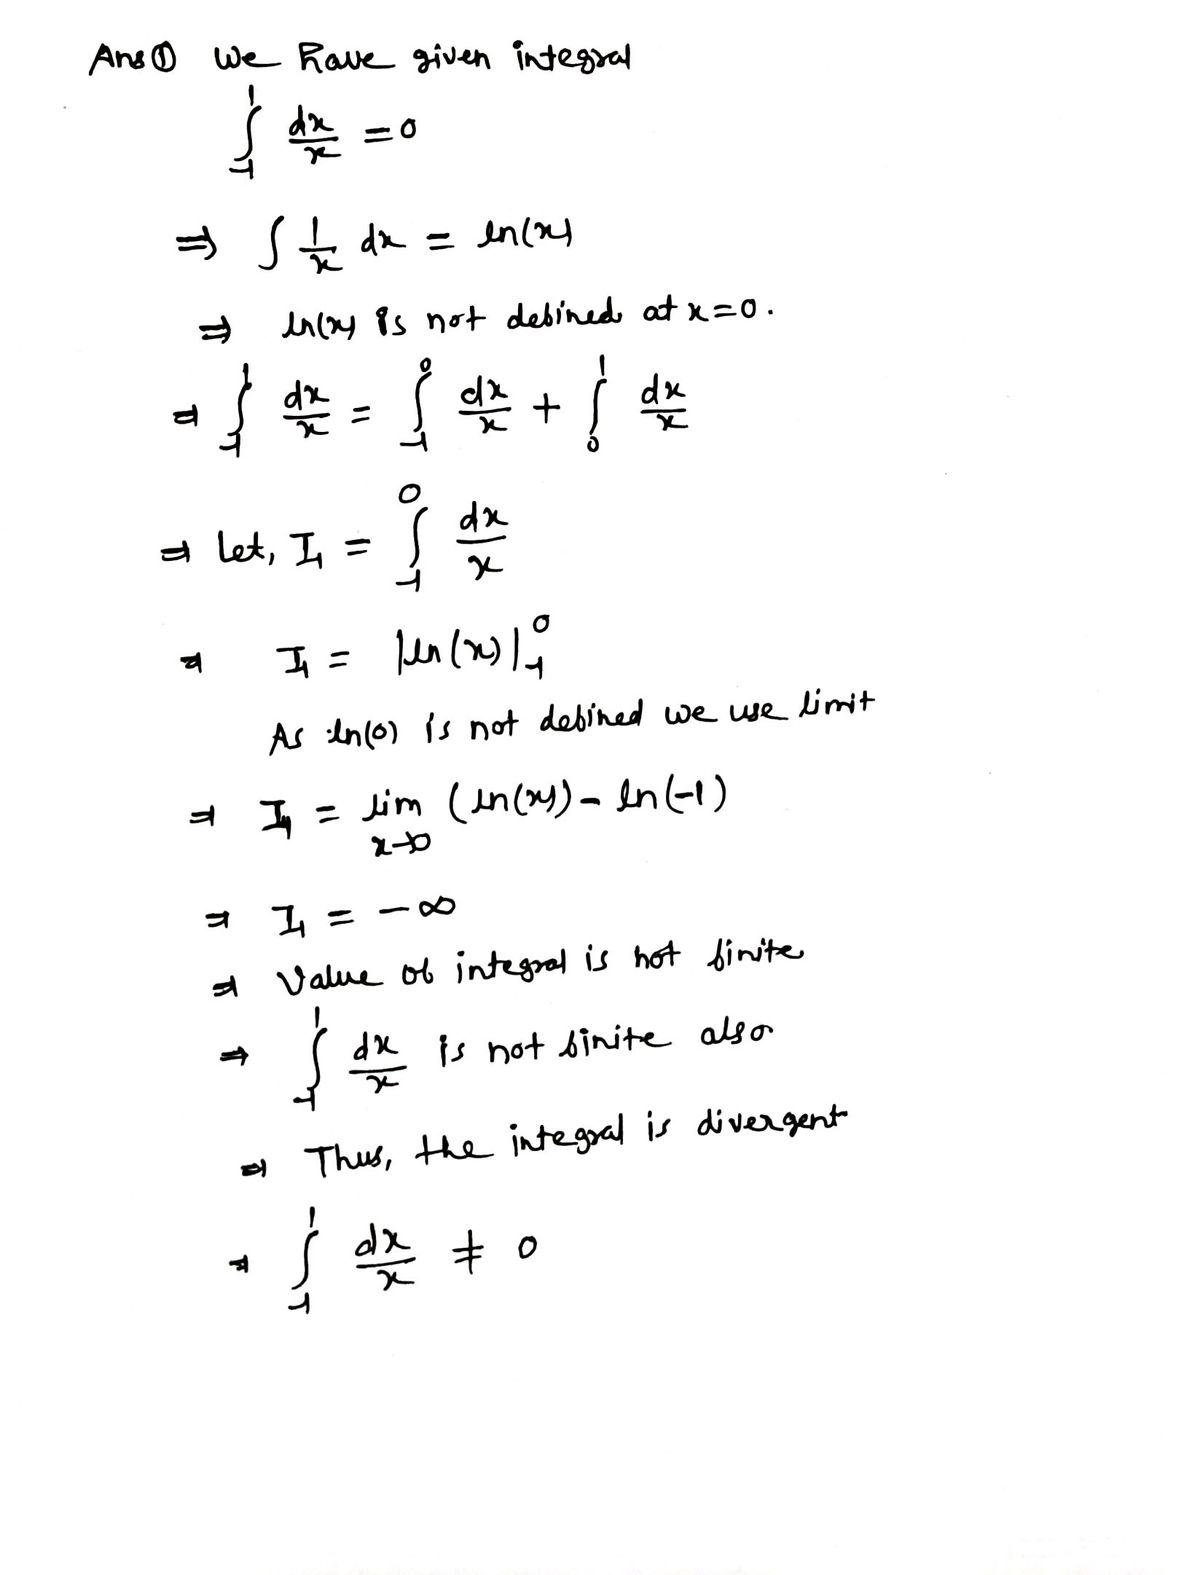 Ans ① We have given integral
∫_{-1}^{1} dx/x = 0
⇒ ∫ 1/x dx = ln(x)
⇒ ln(x) is not defined at x=0.
⇒ ∫_{-1}^{1} dx/x = ∫_{-1}^{0} dx/x + ∫_{0}^{1} dx/x
⇒ Let, I₁ = ∫_{-1}^{0} dx/x
⇒ I₁ = |ln(x)|_{-1}^{0}
As ln(0) is not defined we use limit
⇒ I₁ = lim_{x→0} (ln(x)) - ln(-1)
⇒ I₁ = -∞
⇒ Value of integral is not finite
⇒ ∫_{-1}^{1} dx/x is not finite also
⇒ Thus, the integral is divergent
⇒ ∫_{-1}^{1} dx/x ≠ 0